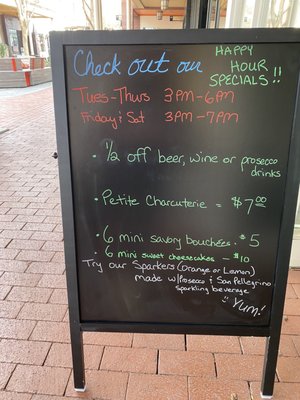 Check out our HAPPY HOUR SPECIALS!!
Tues-Thurs 3PM-6PM
Friday & Sat 3PM-7PM
• 1/2 off beer, wine or prosecco
drinks
• Petite Charcuterie = $7.00
• 6 mini savory bouchées • $5
• 6 mini sweet cheesecakes - $10
Try our Sparkers (Orange or Lemon)
made w/Prosecco & San Pellegrino
sparkling beverage
Yum!